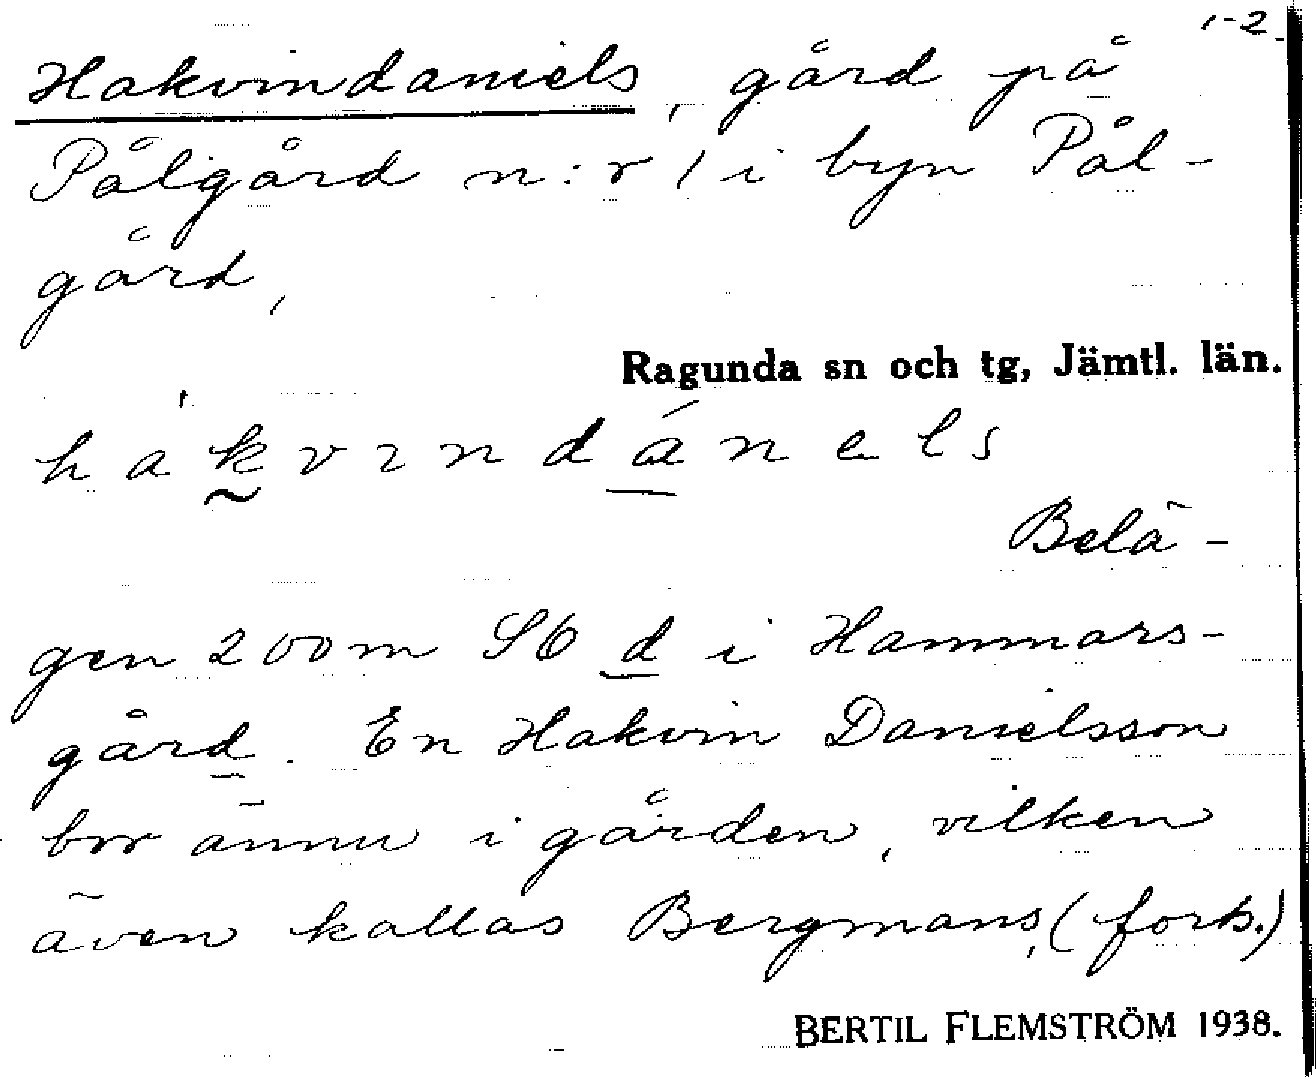 1-2.
Hakvindaniels, gård på
Pålgård n:r 1 i byn Pål-
gård,
Ragunda sn och tg, Jämtl. län.
hakvındánels
Belä-
gen 200 m SO d i Hammars-
gård. En Hakvin Danielsson
bor ännu i gården, vilken
även kallas Bergmans, (forts.)
BERTIL FLEMSTRÖM 1938.